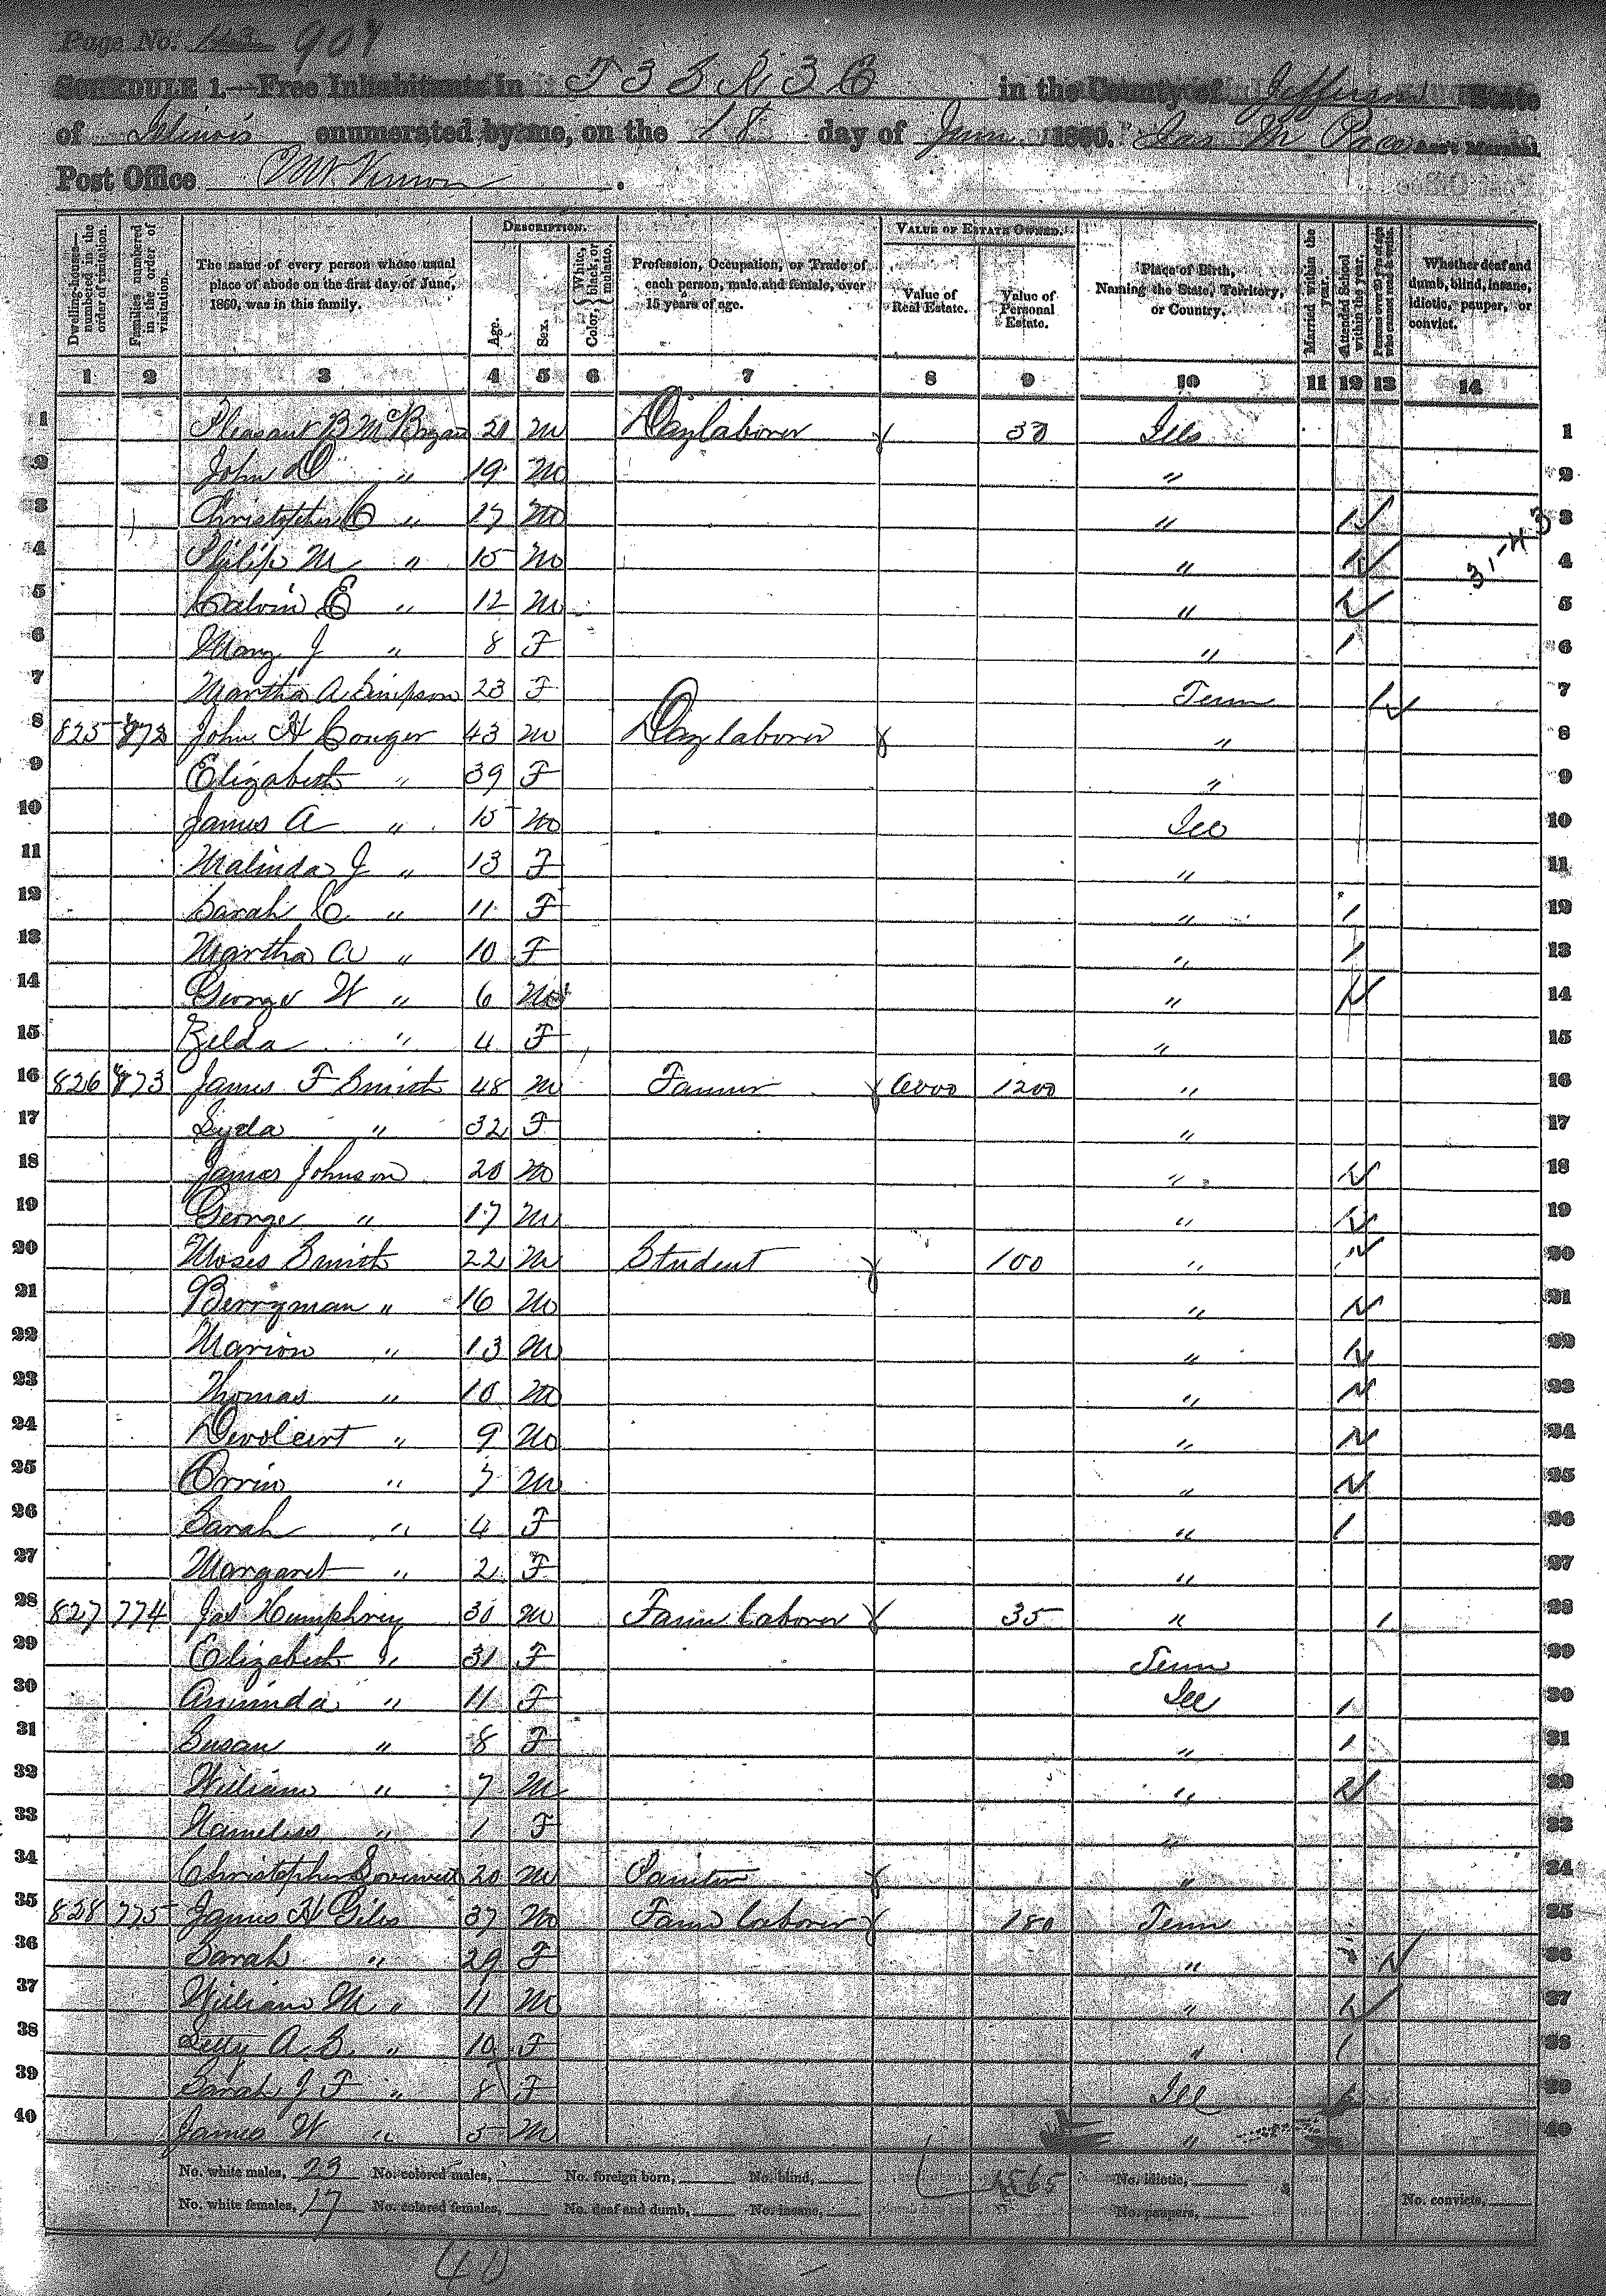 Page No. 143 907
SCHEDULE 1.—Free Inhabitants in T 3 S R 3 E in the County of Jefferson State
of Illinois enumerated by me, on the 18 day of June 1860. Jas M Pace Ass't Marshal.
Post Office Mt Vernon.
Dwelling-houses—numbered in the order of visitation. Families numbered in the order of visitation. The name of every person whose usual place of abode on the first day of June, 1860, was in this family. DESCRIPTION. Age. Sex. Color, {White, black, or mulatto. Profession, Occupation, or Trade of each person, male and female, over 15 years of age. VALUE OF ESTATE OWNED. Value of Real Estate. Value of Personal Estate. Place of Birth, Naming the State, Territory, or Country. Married within the year. Attended School within the year. Persons over 20 y'rs of age who cannot read & write. Whether deaf and dumb, blind, insane, idiotic, pauper, or convict.
1 2 3 4 5 6 7 8 9 10 11 12 13 14
1 Pleasant B McBryan 21 M Day laborer 30 Ills 1
2 John D " 19 M " 2
3 Christopher C " 17 M " 1 3
4 Philip M " 15 M " 1 4
31-43
5 Calvin E " 12 M " 1 5
6 Mary J " 8 F " 1 6
7 Martha A Simpson 23 F Tenn 1 7
8 825 872 John H Conger 43 M Day laborer " 8
9 Elizabeth " 39 F " 9
10 James A " 15 M Ill 10
11 Malinda J " 13 F " 11
12 Sarah C " 11 F " 1 12
13 Martha A " 10 F " 1 13
14 George W " 6 M " 1 14
15 Zelda " 4 F " 15
16 826 873 James F Smith 48 M Farmer 6000 1200 " 16
17 Lyda " 32 F " 17
18 James Johnson 20 M " 1 18
19 George " 17 M " 1 19
20 Moses Smith 22 M Student 100 " 1 20
21 Berryman " 16 M " 1 21
22 Marion " 13 M " 1 22
23 Thomas " 10 M " 1 23
24 " 9 M " 1 24
25 Orrin " 7 M " 1 25
26 Sarah " 4 F " 1 26
27 Margaret " 2 F " 27
28 827 774 Jas Humphrey 30 M Farm laborer 35 " 1 28
29 Elizabeth " 31 F Tenn 29
30 Aminda " 11 F Ill 1 30
31 Susan " 8 F " 1 31
32 William " 7 M " 1 32
33 Nameless " 1 F " 33
34 Christopher 20 M Painter " 34
35 828 775 James H Giles 37 M Farm laborer 180 Tenn 35
36 Sarah " 29 F " 1 36
37 William M " 11 M " 1 37
38 Letty A. S. " 10 F " 1 38
39 Sarah J F " 8 F Ill 1 39
40 James W " 5 M " 40
No. white males, 23 No. colored males, No. foreign born, No. blind, 1565 No. idiotic,
No. white females, 17 No. colored females, No. deaf and dumb, No. insane, No. paupers, No. convicts,
40